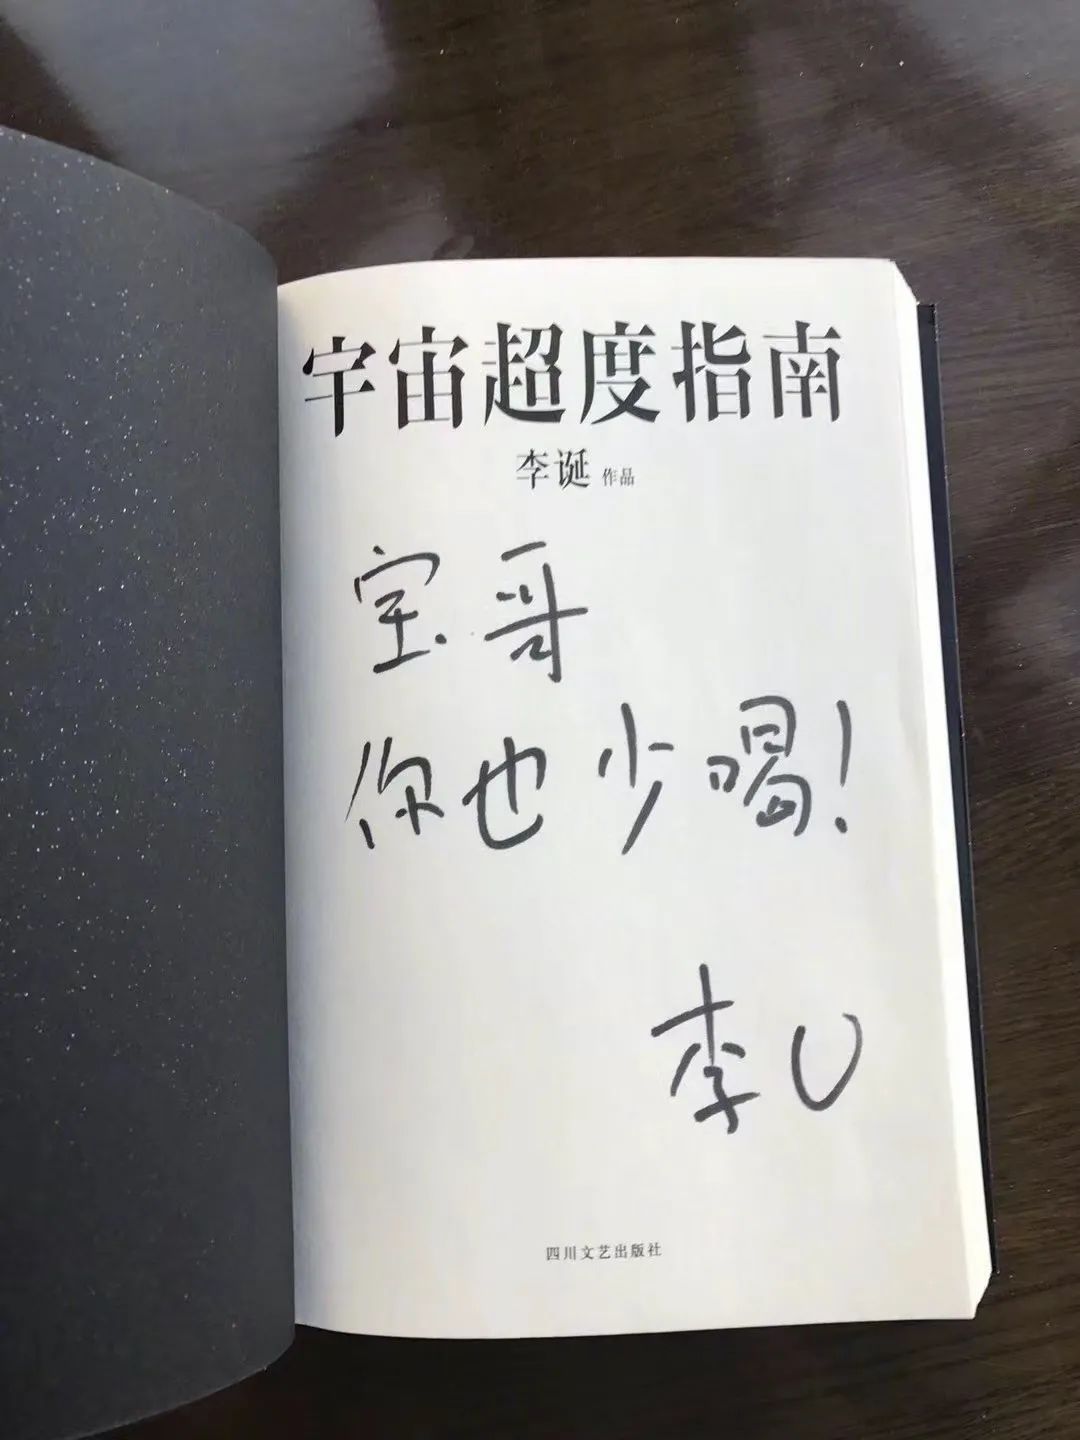 宇宙超度指南
李诞 作品
宝哥
你也少喝!
李U
四川文艺出版社